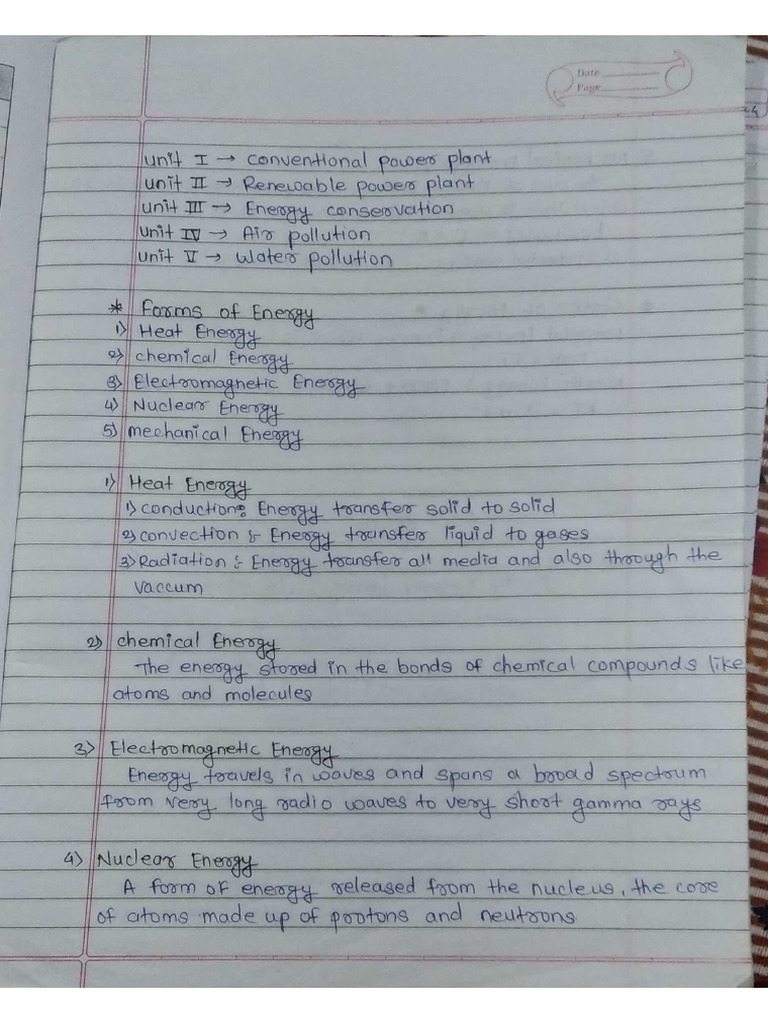 Date
Page
unit I → conventional power plant
unit II → Renewable power plant
unit III → Energy conservation
unit IV → Air pollution
unit V → Water pollution
* Forms of Energy
1) Heat Energy
2) chemical Energy
3) Electromagnetic Energy
4) Nuclear Energy
5) mechanical Energy
1) Heat Energy
1) conduction: Energy transfer solid to solid
2) convection : Energy transfer liquid to gases
3) Radiation : Energy transfer all media and also through the
vaccum
2) chemical Energy
The energy stored in the bonds of chemical compounds like
atoms and molecules
3) Electromagnetic Energy
Energy travels in waves and spans a broad spectrum
from very long radio waves to very short gamma rays
4) Nuclear Energy
A form of energy released from the nucleus, the core
of atoms made up of protons and neutrons